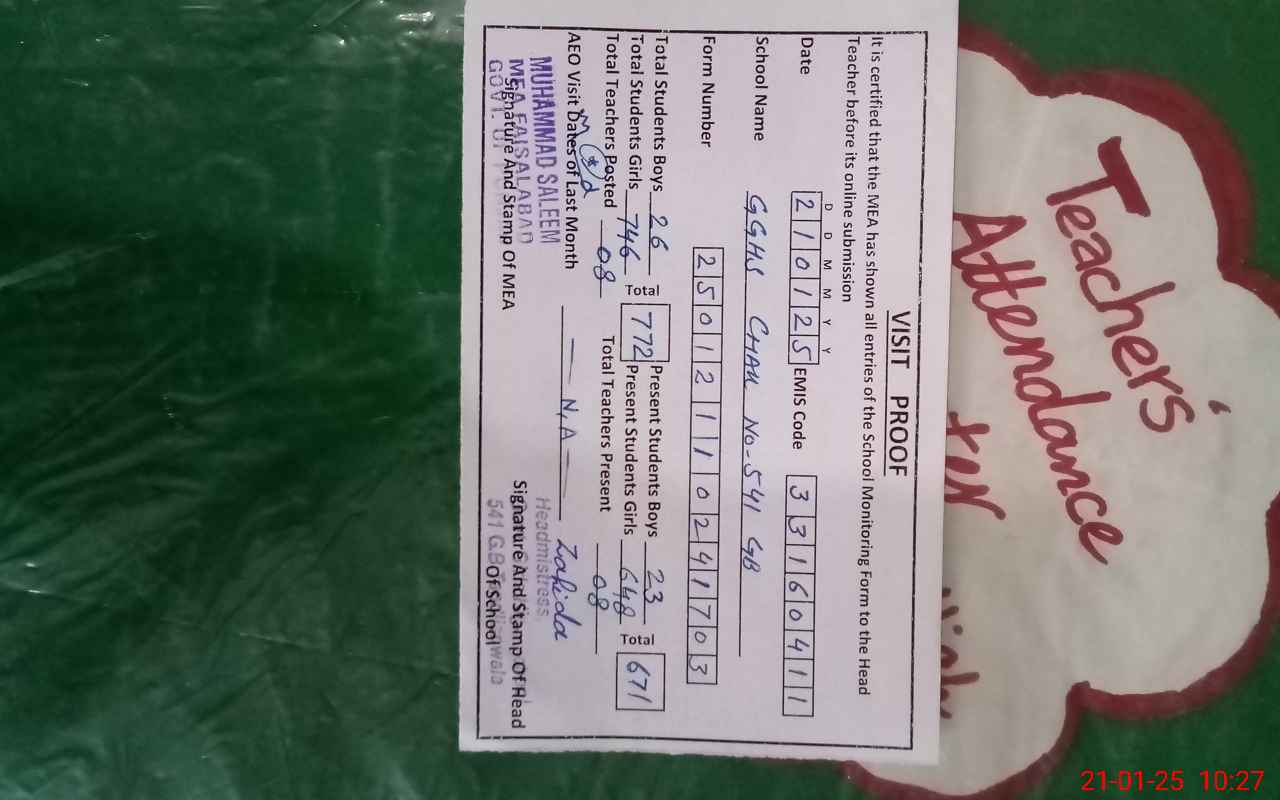 VISIT PROOF
It is certified that the MEA has shown all entries of the School Monitoring Form to the Head
Teacher before its online submission
D D M M Y Y
Date 210125 EMIS Code 33160411
School Name GGHS CHAK No-541 GB
Form Number 25012110241703
Total Students Boys 26 Present Students Boys 23
Total Students Girls 746 Total 772 Present Students Girls 648 Total 671
Total Teachers Posted 08 Total Teachers Present 08
AEO Visit Dates of Last Month — N,A — Zahida
MUHAMMAD SALEEM
MEA FAISALABAD
GOVT. OF
Signature And Stamp Of MEA
Headmistress
Signature And Stamp Of Head
Of School
541 G.B
Teacher's
Attendance
21-01-25 10:27